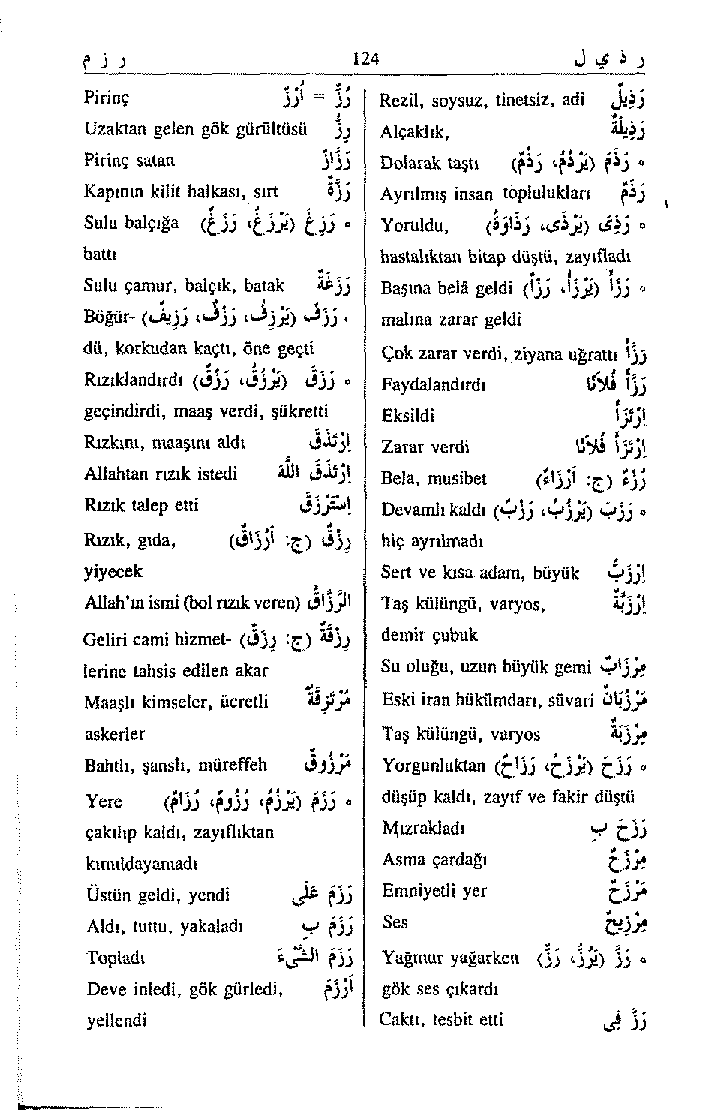 ر ز م 124 ر ذ ي ل
Rezil, soysuz, tinetsiz, adi رَذِيلٌ
Alçaklık, رَذِيلَةٌ
Dolarak taştı رَذَمَ (يَرْذُمُ، رَذْمٌ) •
Ayrılmış insan toplulukları رَذَمٌ
Yoruldu, رَذِىَ (يَرْذَى، رَذَاوَةً) •
hastalıktan bitap düştü, zayıfladı
Başına belâ geldi رَزَأَ (يَرْزَأُ، رَزْأً) •
malına zarar geldi
Çok zarar verdi, ziyana uğrattı رَزَّأَ
Faydalandırdı رَزَأَ فُلَانًا
Eksildi اِرْتَزَأَ
Zarar verdi اِرْتَزَأَ فُلَانًا
Bela, musibet رُزْءٌ (ج: أَرْزَاءٌ)
Devamlı kaldı رَزَبَ (يَرْزُبُ، رَزْبٌ) •
hiç ayrılmadı
Sert ve kısa adam, büyük اِرْزَبٌّ
Taş külüngü, varyos, اِرْزَبَّةٌ
demir çubuk
Su oluğu, uzun büyük gemi مِرْزَابٌ
Eski iran hükümdarı, süvari مَرْزُبَانٌ
Taş külüngü, varyos مِرْزَبَةٌ
Yorgunluktan رَزَحَ (يَرْزَحُ، رَزَاحٌ) •
düşüp kaldı, zayıf ve fakir düştü
Mızrakladı رَزَحَ بِ
Asma çardağı مِرْزَحٌ
Emniyetli yer مَرْزَحٌ
Ses مِرْزِيحٌ
Yağmur yağarken رَزَّ (يَرُزُّ، رَزٌّ) •
gök ses çıkardı
Caktı, tesbit etti رَزَّ فِى
Pirinç رُزٌّ = أَرُزٌّ
Uzaktan gelen gök gürültüsü رِزٌّ
Pirinç satan رَزَّازٌ
Kapının kilit halkası, sırt رَزَّةٌ
Sulu balçığa رَزِغَ (يَرْزَغُ، رَزَغٌ) •
battı
Sulu çamur, balçık, batak رَزَغَةٌ
Böğür- رَزَفَ (يَرْزِفُ، رَزْفٌ، رَزِيفٌ) •
dü, korkudan kaçtı, öne geçti
Rızıklandırdı رَزَقَ (يَرْزُقُ، رَزْقٌ) •
geçindirdi, maaş verdi, şükretti
Rızkını, maaşını aldı اِرْتَزَقَ
Allahtan rızık istedi اِرْتَزَقَ اللّٰهَ
Rızık talep etti اِسْتَرْزَقَ
Rızık, gıda, رِزْقٌ (ج: أَرْزَاقٌ)
yiyecek
Allah'ın ismi (bol rızık veren) الرَّزَّاقُ
Geliri cami hizmet- رِزْقَةٌ (ج: رِزَقٌ)
lerine tahsis edilen akar
Maaşlı kimseler, ücretli مُرْتَزِقَةٌ
askerler
Bahtlı, şanslı, müreffeh مَرْزُوقٌ
Yere رَزَمَ (يَرْزُمُ، رُزُومٌ، رُزَامٌ) •
çakılıp kaldı, zayıflıktan
kımıldayamadı
Üstün geldi, yendi رَزَمَ عَلَى
Aldı, tuttu, yakaladı رَزَمَ بِ
Topladı رَزَمَ الشَّيْءَ
Deve inledi, gök gürledi, أَرْزَمَ
yellendi